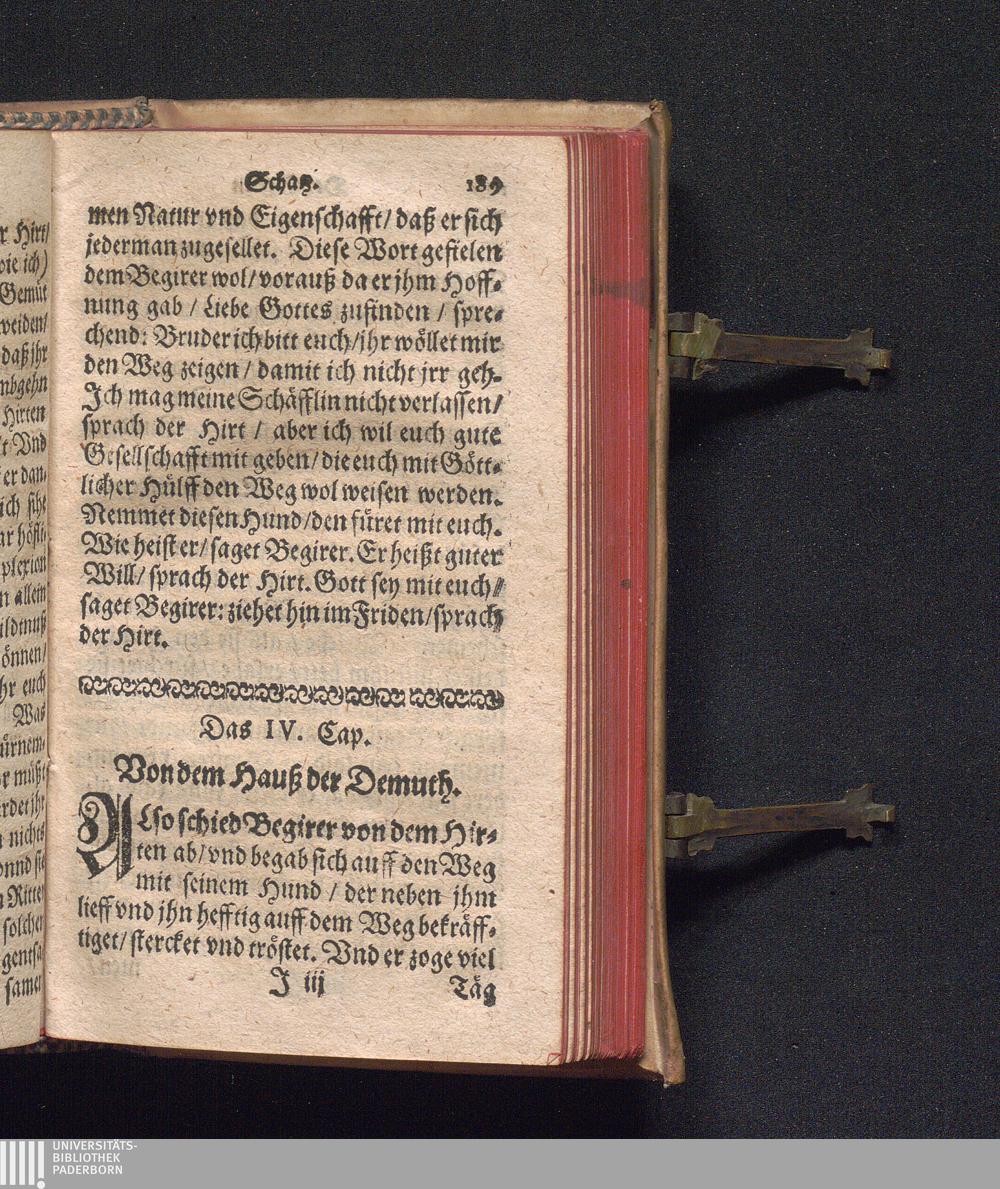 r Hirt/
wie ich)
Gemüt
weiden/
daß jhr
mbgehn
Hirten
t Vnd
er dan-
ich sihe
ar höfli-
plexion
n allein
ildnuß
önnen/
hr euch
Was
ürnem-
r müßt
rdet jhr
nichts
onnd sie
Ritter
solcher
gentsa-
samer
Schatz. 189
men Natur vnd Eigenschafft/ daß er sich
jederman zugesellet. Diese Wort gefielen
dem Begirer wol/ vorauß da er jhm Hoff-
nung gab / Liebe Gottes zufinden / spre-
chend: Bruder ich bitt euch/ jhr wöllet mir
den Weg zeigen / damit ich nicht jrr geh.
Ich mag meine Schäfflin nicht verlassen/
sprach der Hirt / aber ich wil euch gute
Gesellschafft mit geben/ die euch mit Gött-
licher Hülff den Weg wol weisen werden.
Nemmet diesen Hund/ den füret mit euch.
Wie heist er/ saget Begirer. Er heißt guter
Will/ sprach der Hirt. Gott sey mit euch/
saget Begirer: ziehet hin im Friden/ sprach
der Hirt.
Das IV. Cap.
Von dem Hauß der Demuth.
ALso schied Begirer von dem Hir-
ten ab/ vnd begab sich auff den Weg
mit seinem Hund / der neben jhm
lieff vnd jhn hefftig auff dem Weg bekräff-
tiget/ stercket vnd tröstet. Vnd er zoge viel
J iij Täg
UNIVERSITÄTS-
BIBLIOTHEK
PADERBORN